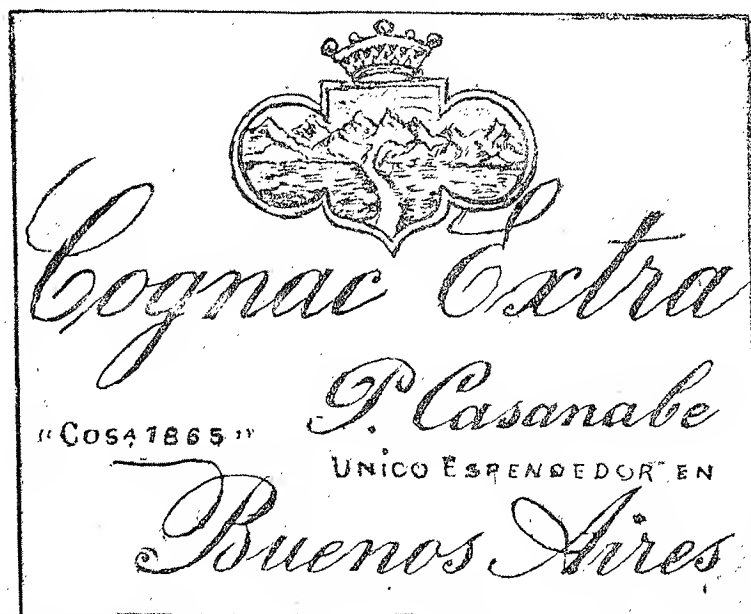 Cognac Extra
P. Casanabe
"COSA 1865"
UNICO ESPENDEDOR EN
Buenos Aires